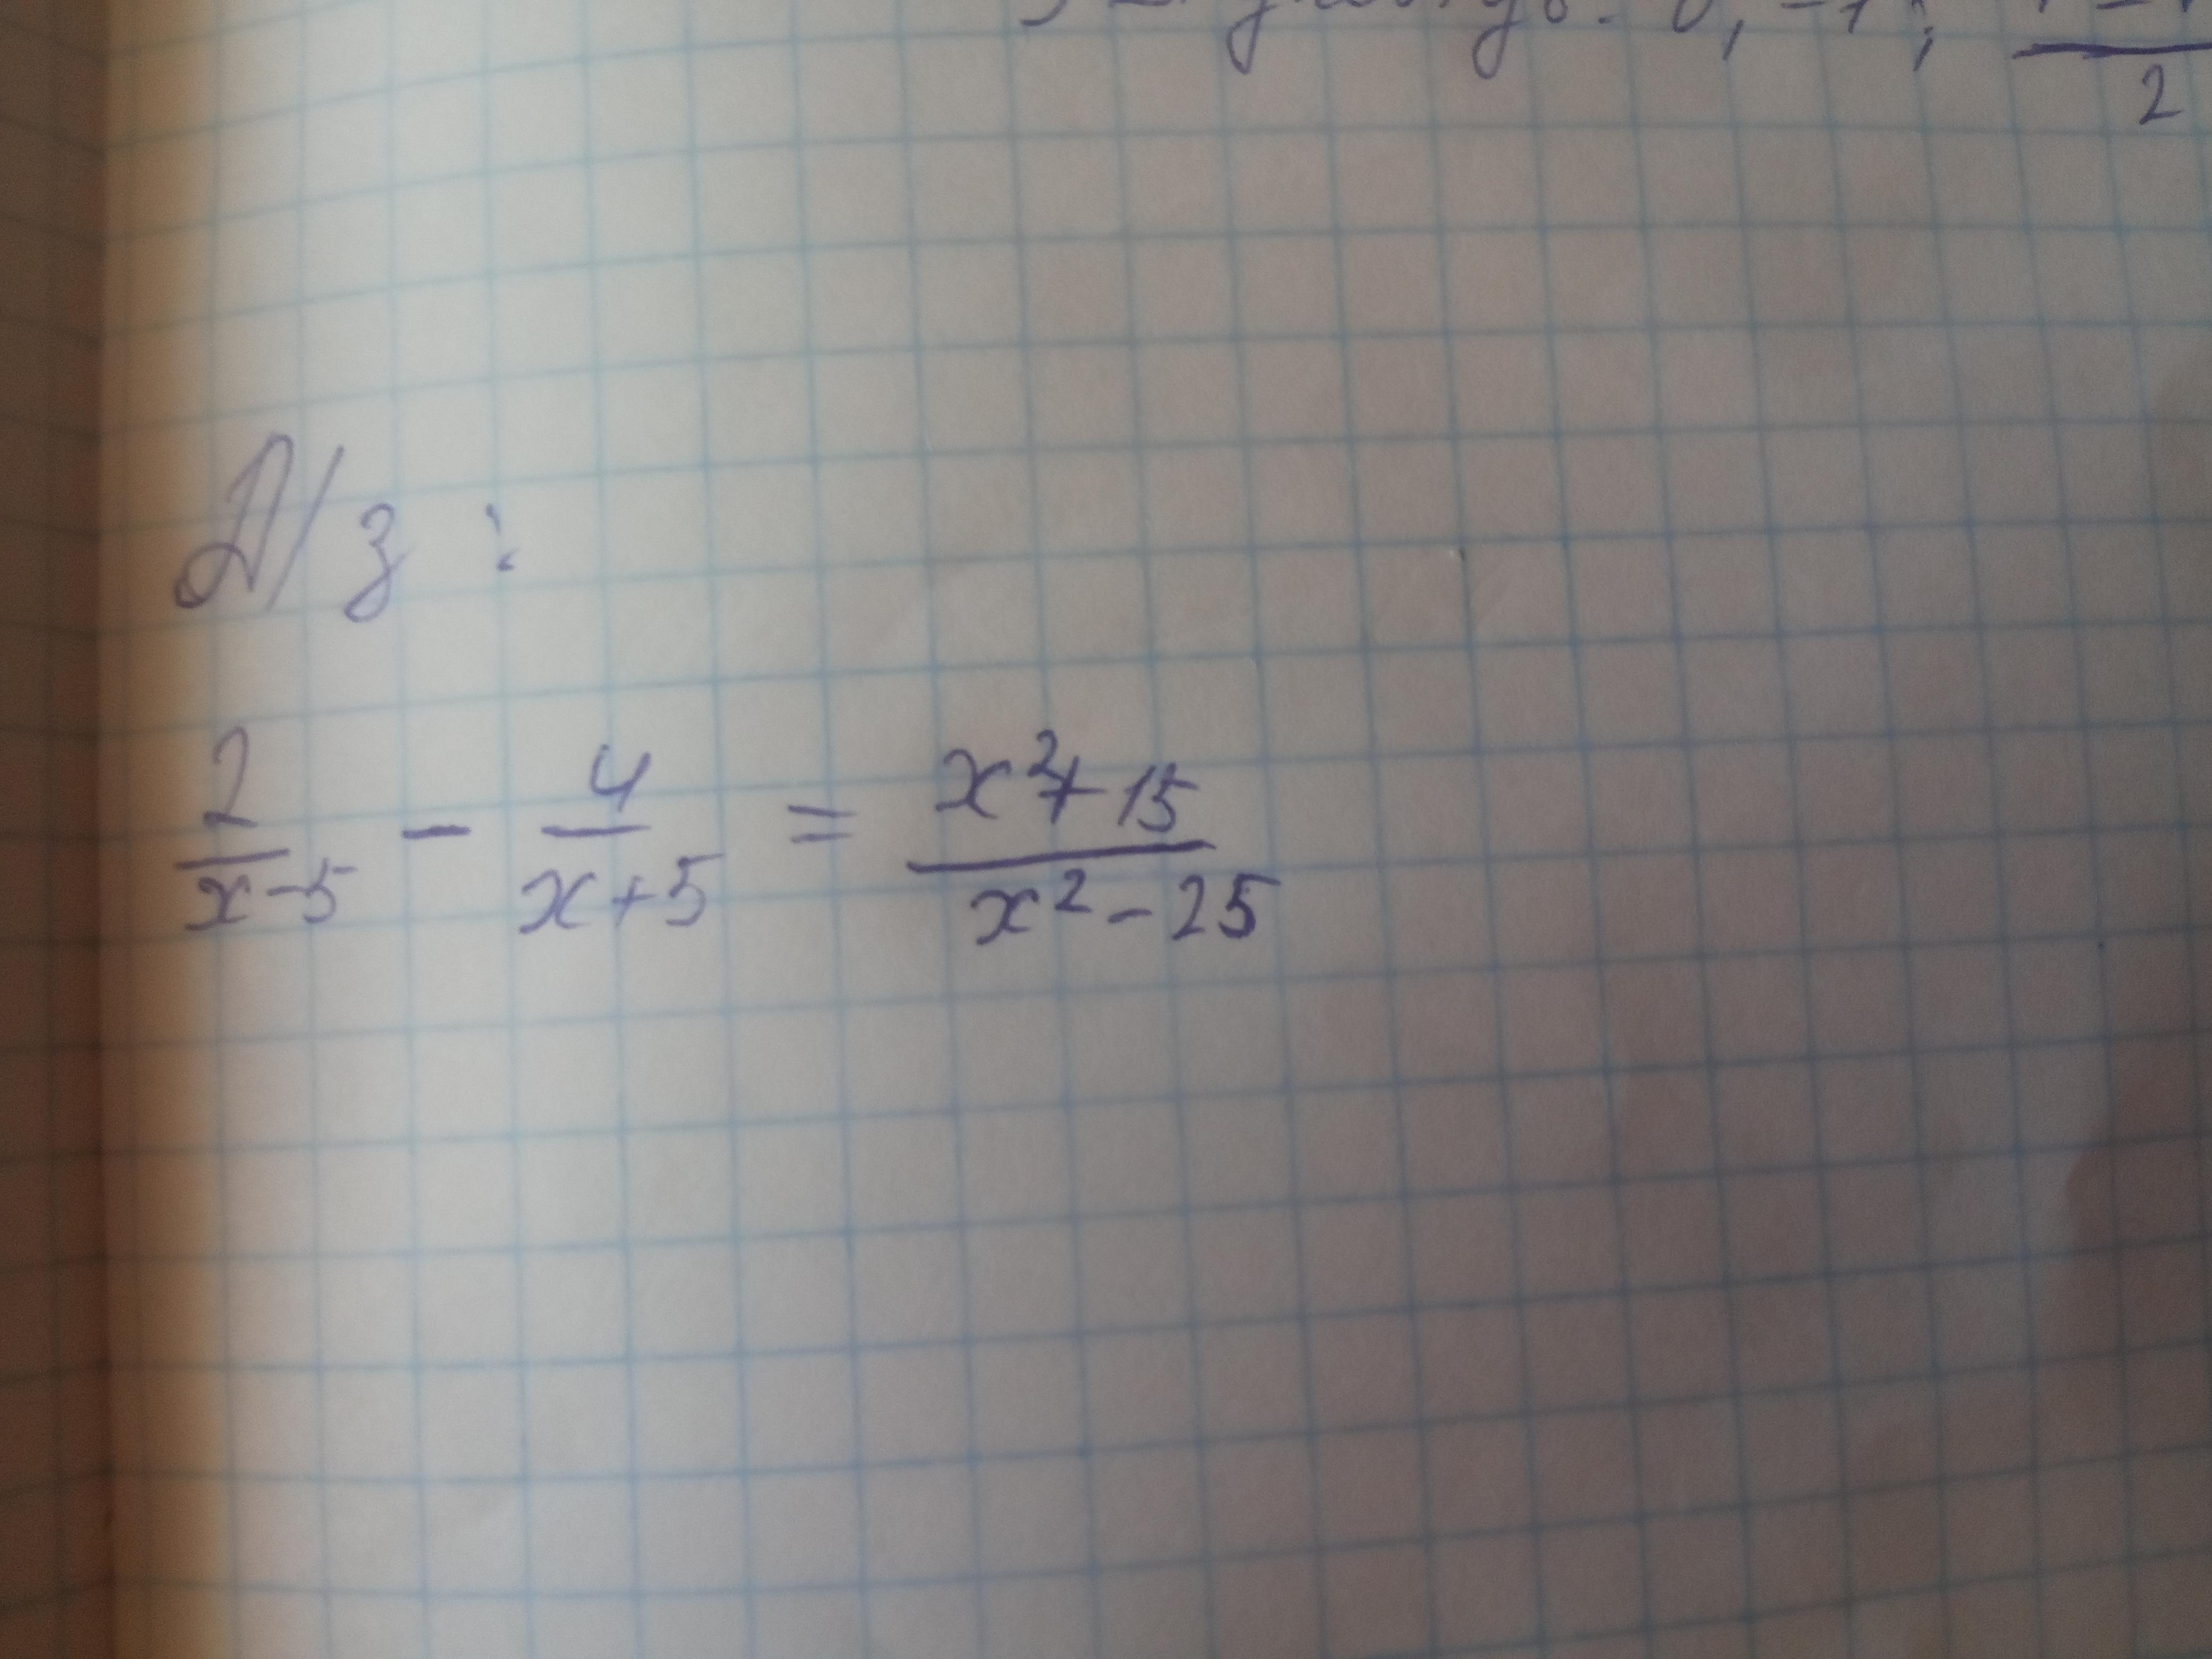 0, -1;
2
Д/з :
2/(x-5) - 4/(x+5) = (x²+15)/(x²-25)